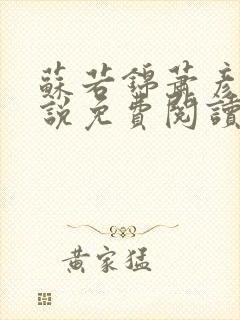 蘇若錦蕭彥
說免費閱讀
黃家猛